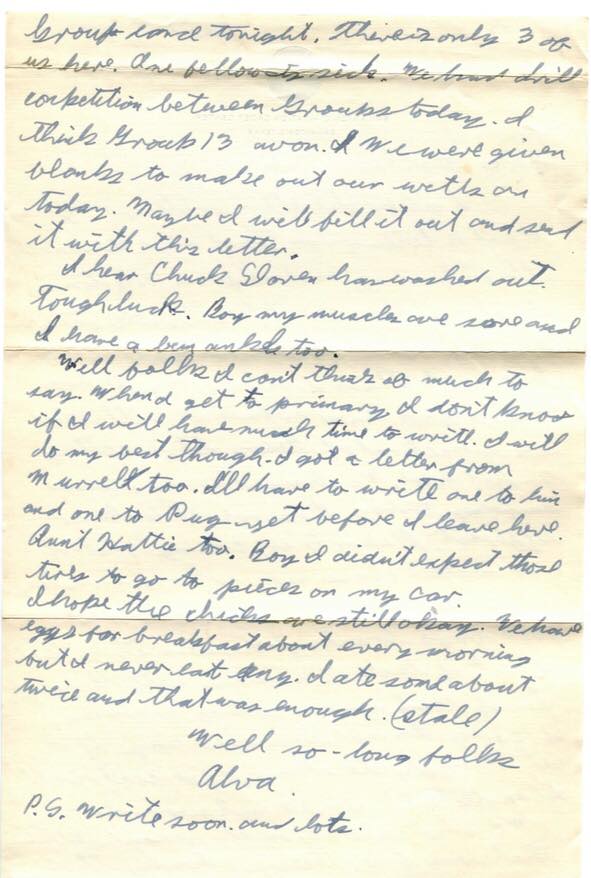 Group land tonight. There is only 3 of
us here. One fellow is sick. We had drill
copetition between Groups today. I
think Group 13 won. I We were given
blanks to make out our wills on
today. Maybe I will fill it out and send
it with this letter.
I hear Chuck Gloven has washed out.
Tough luck. Boy my muscles are sore and
I have a bum ankle too.
Well folks I can't think of much to
say. When I get to primary I don't know
if I will have much time to write. I will
do my best though. I got a letter from
Murrell too. I'll have to write one to him
and one to Pug yet before I leave here.
Aunt Hattie too. Boy I didn't expect those
tires to go to pieces on my car.
I hope the chicks are still okay. We have
eggs for breakfast about every morning
but I never eat any. I ate some about
twice and that was enough. (stale)
Well so-long folks
Alva.
P.S. Write soon. and lots.